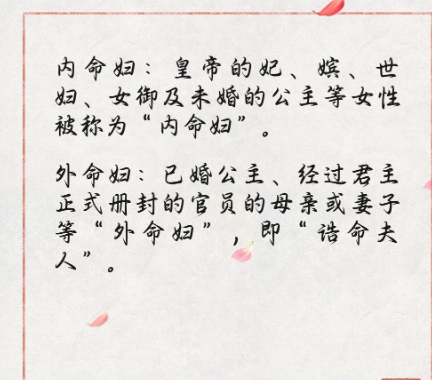 内命妇：皇帝的妃、嫔、世
妇、女御及未婚的公主等女性
被称为“内命妇”。
外命妇：已婚公主、经过君主
正式册封的官员的母亲或妻子
等“外命妇”，即“诰命夫
人”。